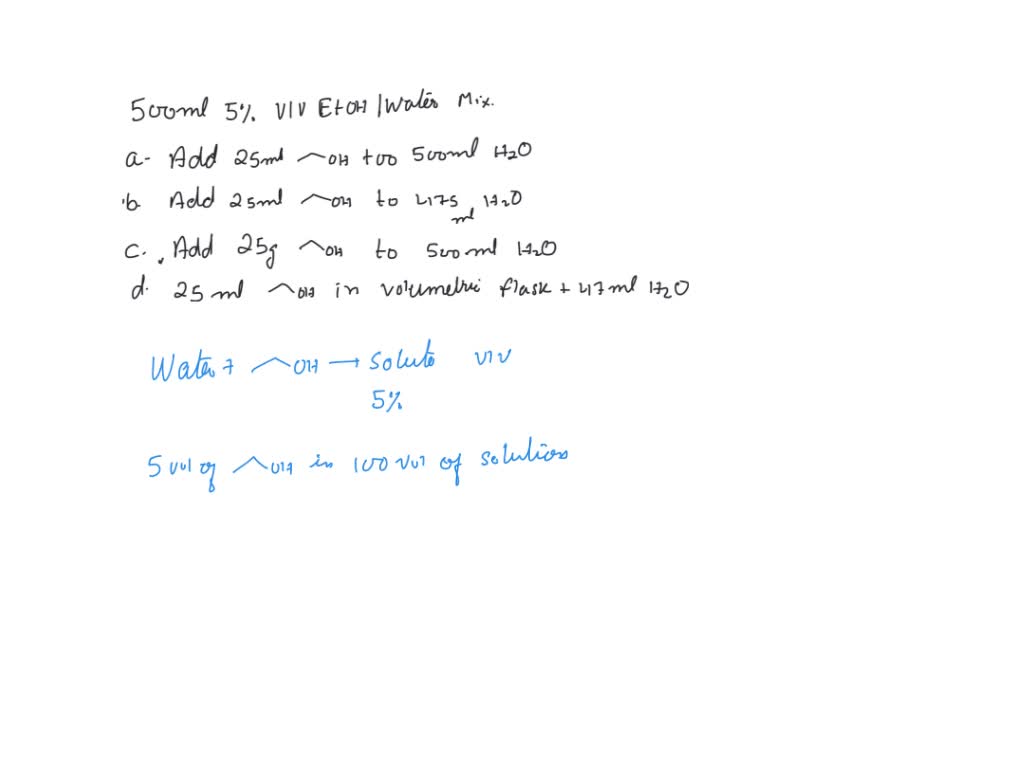 500ml 5% V/V EtOH/Water Mix.
a- Add 25ml OH too 500ml H2O
b Add 25ml OH to 475 ml H2O
c. Add 25g OH to 500ml H2O
d. 25 ml OH in volumetric flask + 47ml H2O
Water + OH → Solute V/V
5%
5 vol of OH in 100 vol of solution